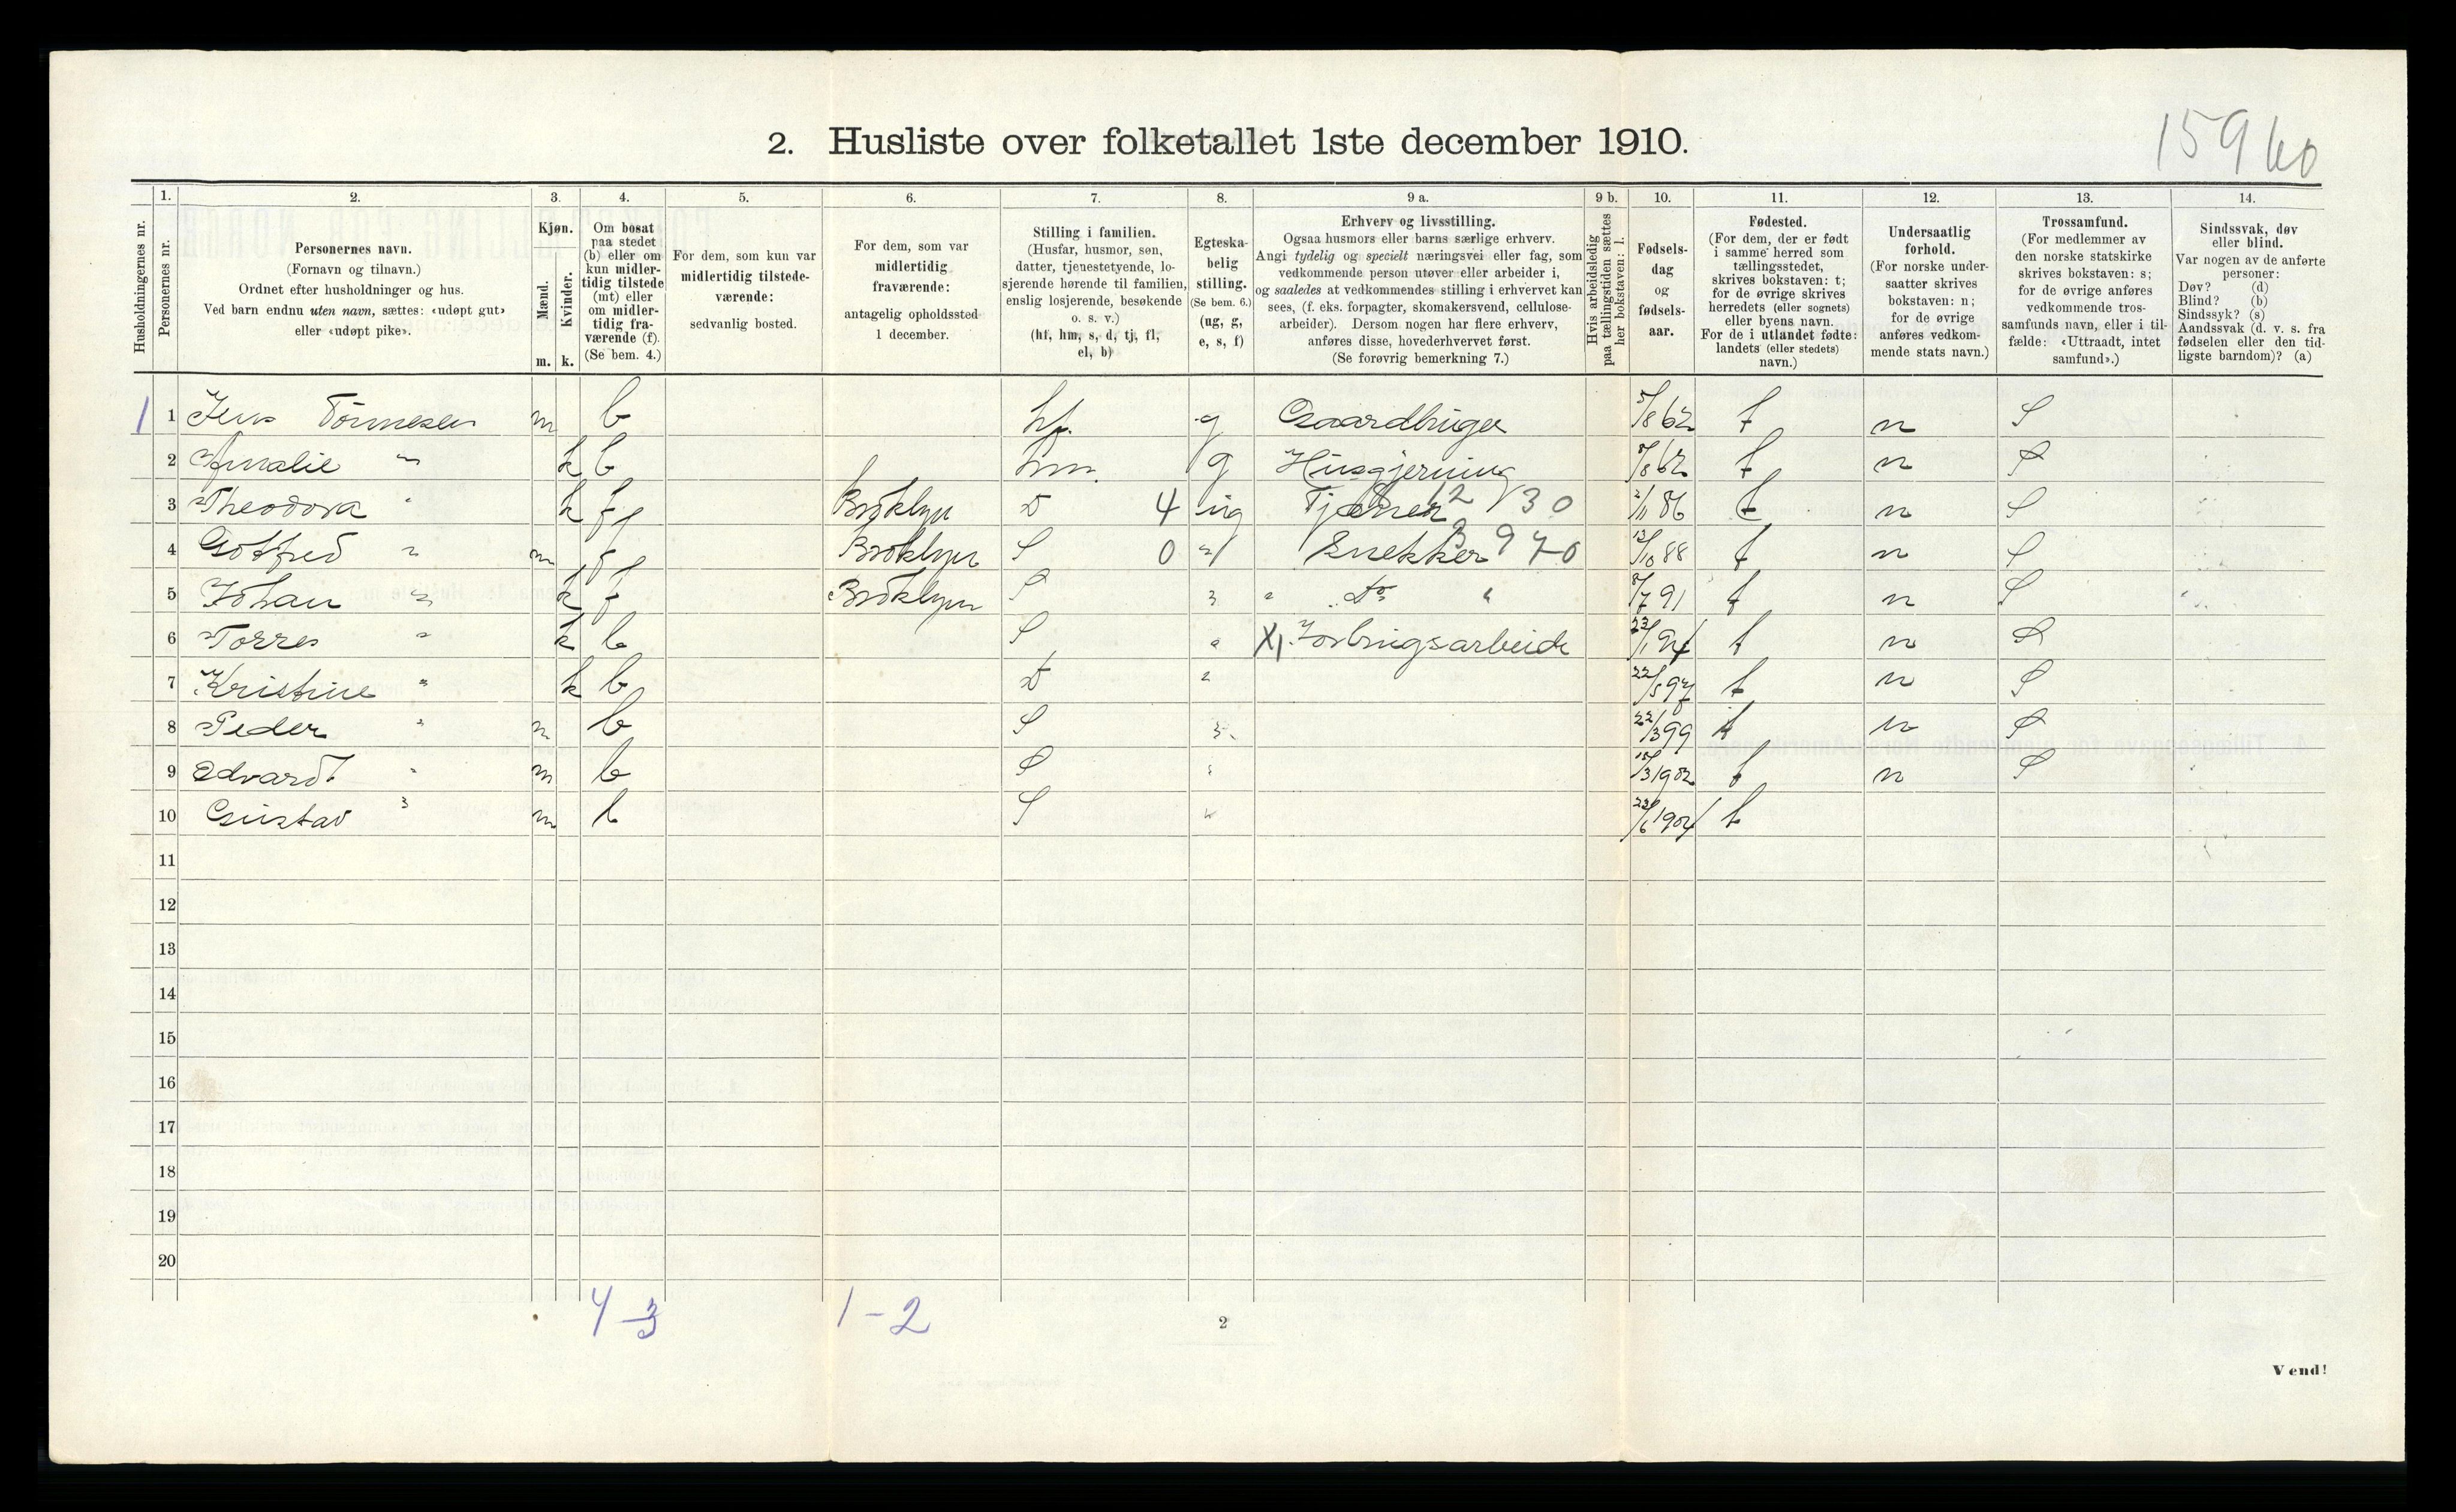 15960
2. Husliste over folketallet 1ste december 1910.
Husholdningernes nr.
1. Personernes nr.
2. Personernes navn.
(Fornavn og tilnavn.)
Ordnet efter husholdninger og hus.
Ved barn endnu uten navn, sættes: «udøpt gut»
eller «udøpt pike».
3. Kjøn.
Mænd. m.
Kvinder. k.
4. Om bosat
paa stedet
(b) eller om
kun midler-
tidig tilstede
(mt) eller
om midler-
tidig fra-
værende (f).
(Se bem. 4.)
5. For dem, som kun var
midlertidig tilstede-
værende:
sedvanlig bosted.
6. For dem, som var
midlertidig
fraværende:
antagelig opholdssted
1 december.
7. Stilling i familien.
(Husfar, husmor, søn,
datter, tjenestetyende, lo-
sjerende hørende til familien,
enslig losjerende, besøkende
o. s. v.)
(hf, hm, s, d, tj, fl,
el, b)
8. Egteska-
belig
stilling.
(Se bem. 6.)
(ug, g,
e, s, f)
9 a. Erhverv og livsstilling.
Ogsaa husmors eller barns særlige erhverv.
Angi tydelig og specielt næringsvei eller fag, som
vedkommende person utøver eller arbeider i,
og saaledes at vedkommendes stilling i erhvervet kan
sees, (f. eks. forpagter, skomakersvend, cellulose-
arbeider). Dersom nogen har flere erhverv,
anføres disse, hovederhvervet først.
(Se forøvrig bemerkning 7.)
9 b. Hvis arbeidsledig
paa tællingstiden sættes
her bokstaven: l.
10. Fødsels-
dag
og
fødsels-
aar.
11. Fødested.
(For dem, der er født
i samme herred som
tællingsstedet,
skrives bokstaven: t;
for de øvrige skrives
herredets (eller sognets)
eller byens navn.
For de i utlandet fødte:
landets (eller stedets)
navn.)
12. Undersaatlig
forhold.
(For norske under-
saatter skrives
bokstaven: n;
for de øvrige
anføres vedkom-
mende stats navn.)
13. Trossamfund.
(For medlemmer av
den norske statskirke
skrives bokstaven: s;
for de øvrige anføres
vedkommende tros-
samfunds navn, eller i til-
fælde: «Uttraadt, intet
samfund».)
14. Sindssvak, døv
eller blind.
Var nogen av de anførte
personer:
Døv? (d)
Blind? (b)
Sindssyk? (s)
Aandssvak (d. v. s. fra
fødselen eller den tid-
ligste barndom)? (a)
1 1 Jens Tönnesen m b hf. g Gaardbruger 5/8 62 t n S
2 Amalie " k b hm. g Husgjerning 8/8 62 t n S
3 Theodora " k f Broklyn D 4 ug Tjener 12 130 2/11 86 t n S
4 Gotfred " m f Broklyn S 0 " Snekker 3 970 12/10 88 t n S
5 Johan " k f Broklyn S " " Do " 8/7 91 t n S
6 Torres " k b S " X Jorbrugsarbeide 23/1 94 t n S
7 Kristine " k b D " 22/5 97 t n S
8 Peder " m b S " 22/3 99 t n S
9 Edvard " m b S " 15/3 1902 t n S
10 Gustav " m b S " 23/6 1904 t
11
12
13
14
15
16
17
18
19
20
4-3 1-2
2
Vend!